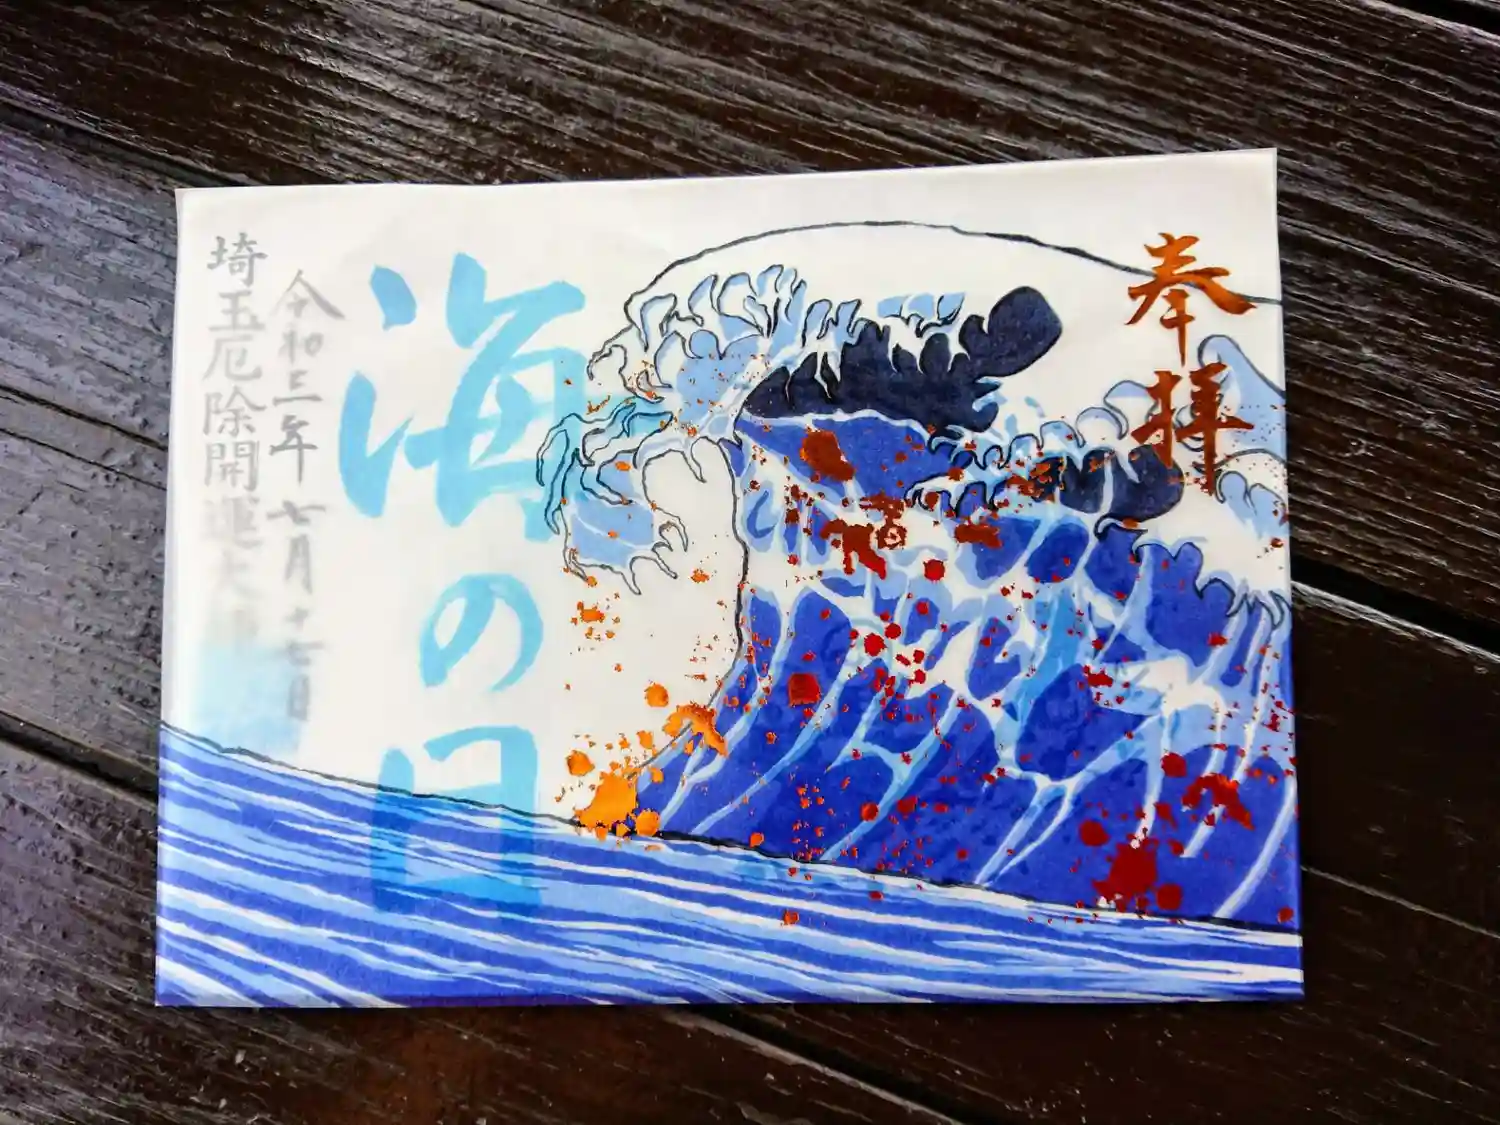 奉拝
海の日
令和三年七月十七日
埼玉厄除開運大師